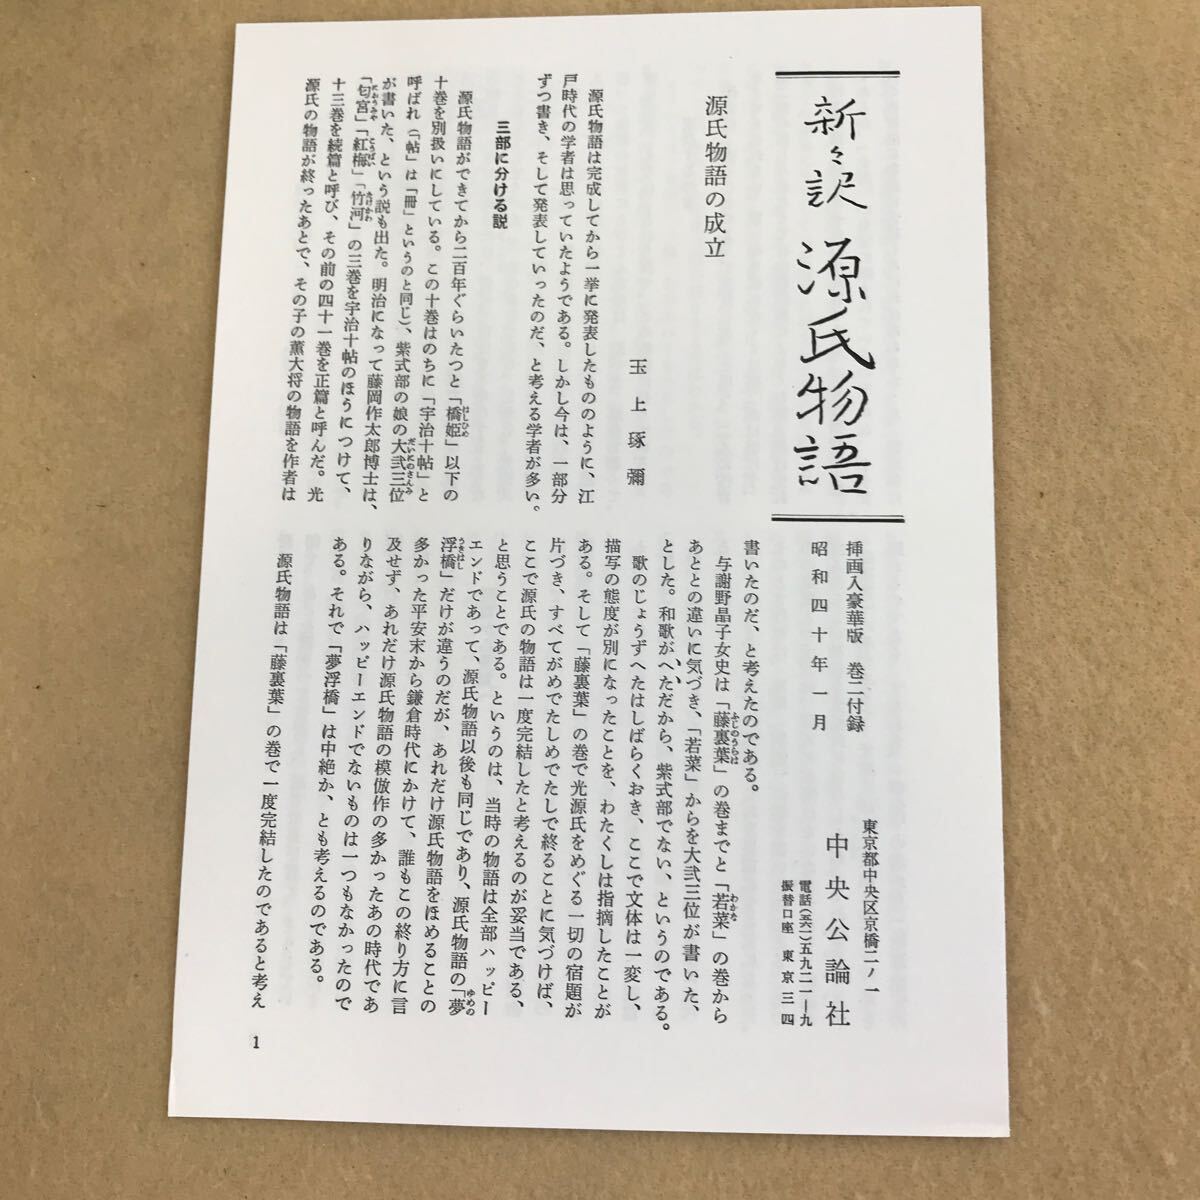 新々訳 源氏物語
挿画入豪華版 巻二付録
昭和四十年一月
東京都中央区京橋二ノ一
中央公論社
電話(五六一)五九二一―九
振替口座 東京三四
源氏物語の成立
玉上琢彌
源氏物語は完成してから一挙に発表したもののように、江
戸時代の学者は思っていたようである。しかし今は、一部分
ずつ書き、そして発表していったのだ、と考える学者が多い。
三部に分ける説
源氏物語ができてから二百年ぐらいたつと「橋姫」以下の
十巻を別扱いにしている。この十巻はのちに「宇治十帖」と
呼ばれ(「帖」は「冊」というのと同じ)、紫式部の娘の大弐三位
が書いた、という説も出た。明治になって藤岡作太郎博士は、
「匂宮」「紅梅」「竹河」の三巻を宇治十帖のほうにつけて、
十三巻を続篇と呼び、その前の四十一巻を正篇と呼んだ。光
源氏の物語が終ったあとで、その子の薫大将の物語を作者は
書いたのだ、と考えたのである。
与謝野晶子女史は「藤裏葉」の巻までと「若菜」の巻から
あととの違いに気づき、「若菜」からを大弐三位が書いた、
とした。和歌がへただから、紫式部でない、というのである。
歌のじょうずへたはしばらくおき、ここで文体は一変し、
描写の態度が別になったことを、わたくしは指摘したことが
ある。そして「藤裏葉」の巻で光源氏をめぐる一切の宿題が
片づき、すべてがめでたしめでたしで終ることに気づけば、
ここで源氏の物語は一度完結したと考えるのが妥当である、
と思うことである。というのは、当時の物語は全部ハッピー
エンドであって、源氏物語以後も同じであり、源氏物語の「夢
浮橋」だけが違うのだが、あれだけ源氏物語をほめることの
多かった平安末から鎌倉時代にかけて、誰もこの終り方に言
及せず、あれだけ源氏物語の模倣作の多かったあの時代であ
りながら、ハッピーエンドでないものは一つもなかったので
ある。それで「夢浮橋」は中絶か、とも考えるのである。
源氏物語は「藤裏葉」の巻で一度完結したのであると考え
1